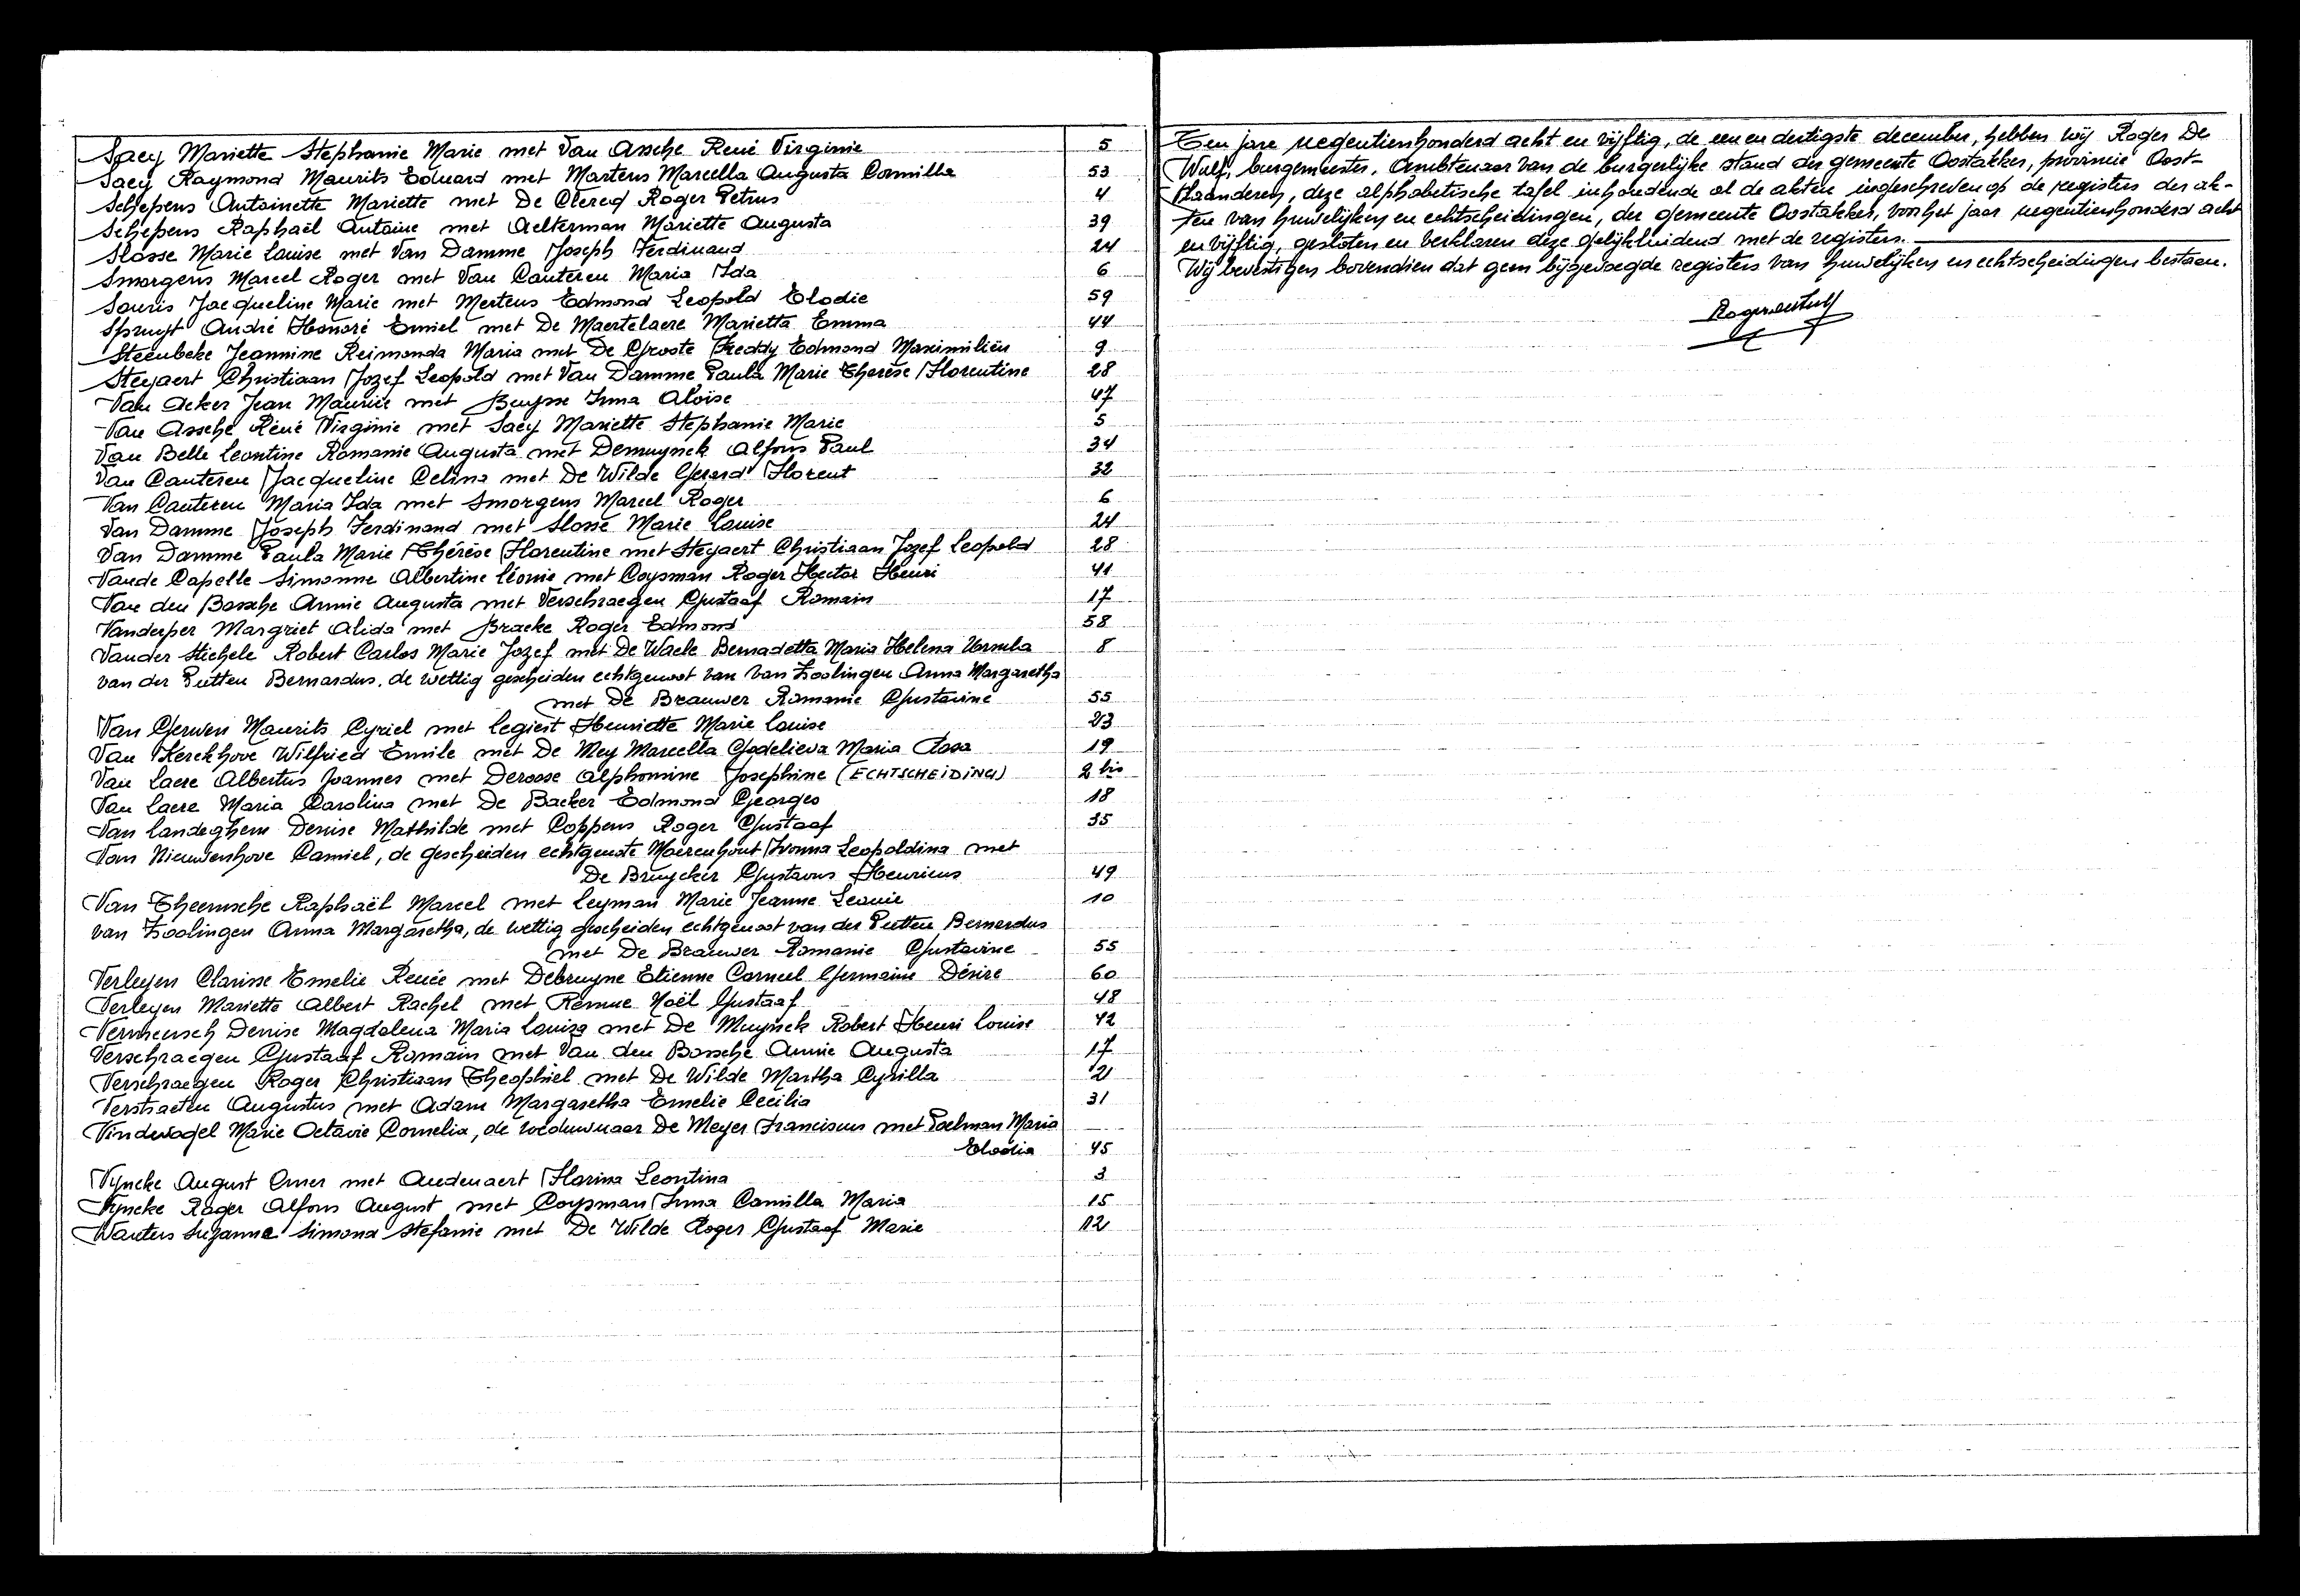 Saey Mariette Stephanie Marie met Van Assche René Virginie 5
Saey Raymond Maurits Eduard met Martens Marcella Augusta Cornilla 53
Schepens Antoinette Mariette met De Clercq Roger Petrus 4
Schepens Raphaël Antoine met Aelterman Mariette Augusta 39
Slosse Marie Louise met Van Damme Joseph Ferdinand 24
Smorgens Marcel Roger met Van Canteren Maria Ida 6
Souris Jacqueline Marie met Mertens Edmond Leopold Elodie 59
Spruyt André Honoré Emiel met De Maertelaere Marietta Emma 44
Steenbeke Jeannine Reimonda Maria met De Groote Freddy Edmond Maximilien 9
Steyaert Christiaan Jozef Leopold met Van Damme Paula Marie Therèse Florentine 28
Van Acker Jean Maurice met Buysse Irma Aloïse 47
Van Assche René Virginie met Saey Mariette Stephanie Marie 5
Van Belle Leontine Romanie Augusta met Demuynck Alfons Paul 34
Van Canteren Jacqueline Celina met De Wilde Gerard Florent 32
Van Canteren Maria Ida met Smorgens Marcel Roger 6
Van Damme Joseph Ferdinand met Slosse Marie Louise 24
Van Damme Paula Marie Thérèse Florentine met Steyaert Christiaan Jozef Leopold 28
Vande Capelle Simonne Albertine Léonie met Coysman Roger Hector Henri 41
Van den Bossche Annie Augusta met Verschraegen Gustaaf Romain 17
Vanderper Margriet Alida met Braeke Roger Edmond 58
Vander Stichele Robert Carlos Marie Jozef met De Waele Bernadetta Maria Helena Ursula 8
van der Putten Bernardus, de wettig gescheiden echtgenoot van van Zoolingen Anna Margaretha
met De Brauwer Romanie Gustavine 55
Van Gerwen Maurits Cyriel met Legiest Henriette Marie Louise 23
Van Kerckhove Wilfried Emile met De Mey Marcella Godelieva Maria Rosa 19
Van Laere Albertus Joannes met Deroose Alphonsine Josephine (ECHTSCHEIDING) 2 bis
Van Laere Maria Carolina met De Backer Edmond Georges 18
Van Landeghem Denise Mathilde met Coppens Roger Gustaaf 35
Van Nieuwenhove Camiel, de gescheiden echtgenote Maerenhout Ivonna Leopoldina met
De Bruycker Gustavus Henricus 49
Van Theemsche Raphaël Marcel met Leyman Marie Jeanne Leonie 10
van Zoolingen Anna Margaretha, de wettig gescheiden echtgenoot van der Putten Bernardus
met De Brauwer Romanie Gustavine 55
Verleyen Clarisse Emelie Renée met Debruyne Etienne Corneel Germaine Désiré 60
Verleyen Mariette Albert Rachel met Remue Noël Gustaaf 48
Vermeersch Denise Magdalena Maria Louiza met De Muynck Robert Henri Louise 42
Verschraegen Gustaaf Romain met Van den Bossche Annie Augusta 17
Verschraegen Roger Christiaan Theophiel met De Wilde Martha Cyrilla 21
Verstraeten Augustus met Adam Margaretha Emelie Cecilia 31
Vindevogel Marie Octavie Cornelia, de weduwnaar De Meyer Franciscus met Poelman Maria
Elodia 45
Vyncke August Omer met Audenaert Florina Leontina 3
Vyncke Roger Alfons August met Coysman Irma Camilla Maria 15
Wauters Suzanna Simona Stefanie met De Wilde Roger Gustaaf Marie 12
Ten jare negentienhonderd acht en vijftig, de een en dertigste december, hebben wij Roger De
Wulf, burgemeester, Ambtenaar van de burgerlijke stand der gemeente Oostakker, provincie Oost-
Vlaanderen, deze alphabetische tafel inhoudende al de akten ingeschreven op de registers der ak-
ten van huwelijken en echtscheidingen, der gemeente Oostakker, voor het jaar negentienhonderd acht
en vijftig, gesloten en verklaren deze gelijkluidend met de registers.
Wij bevestigen bovendien dat geen bijgevoegde registers van huwelijken en echtscheidingen bestaan.
Roger De Wulf